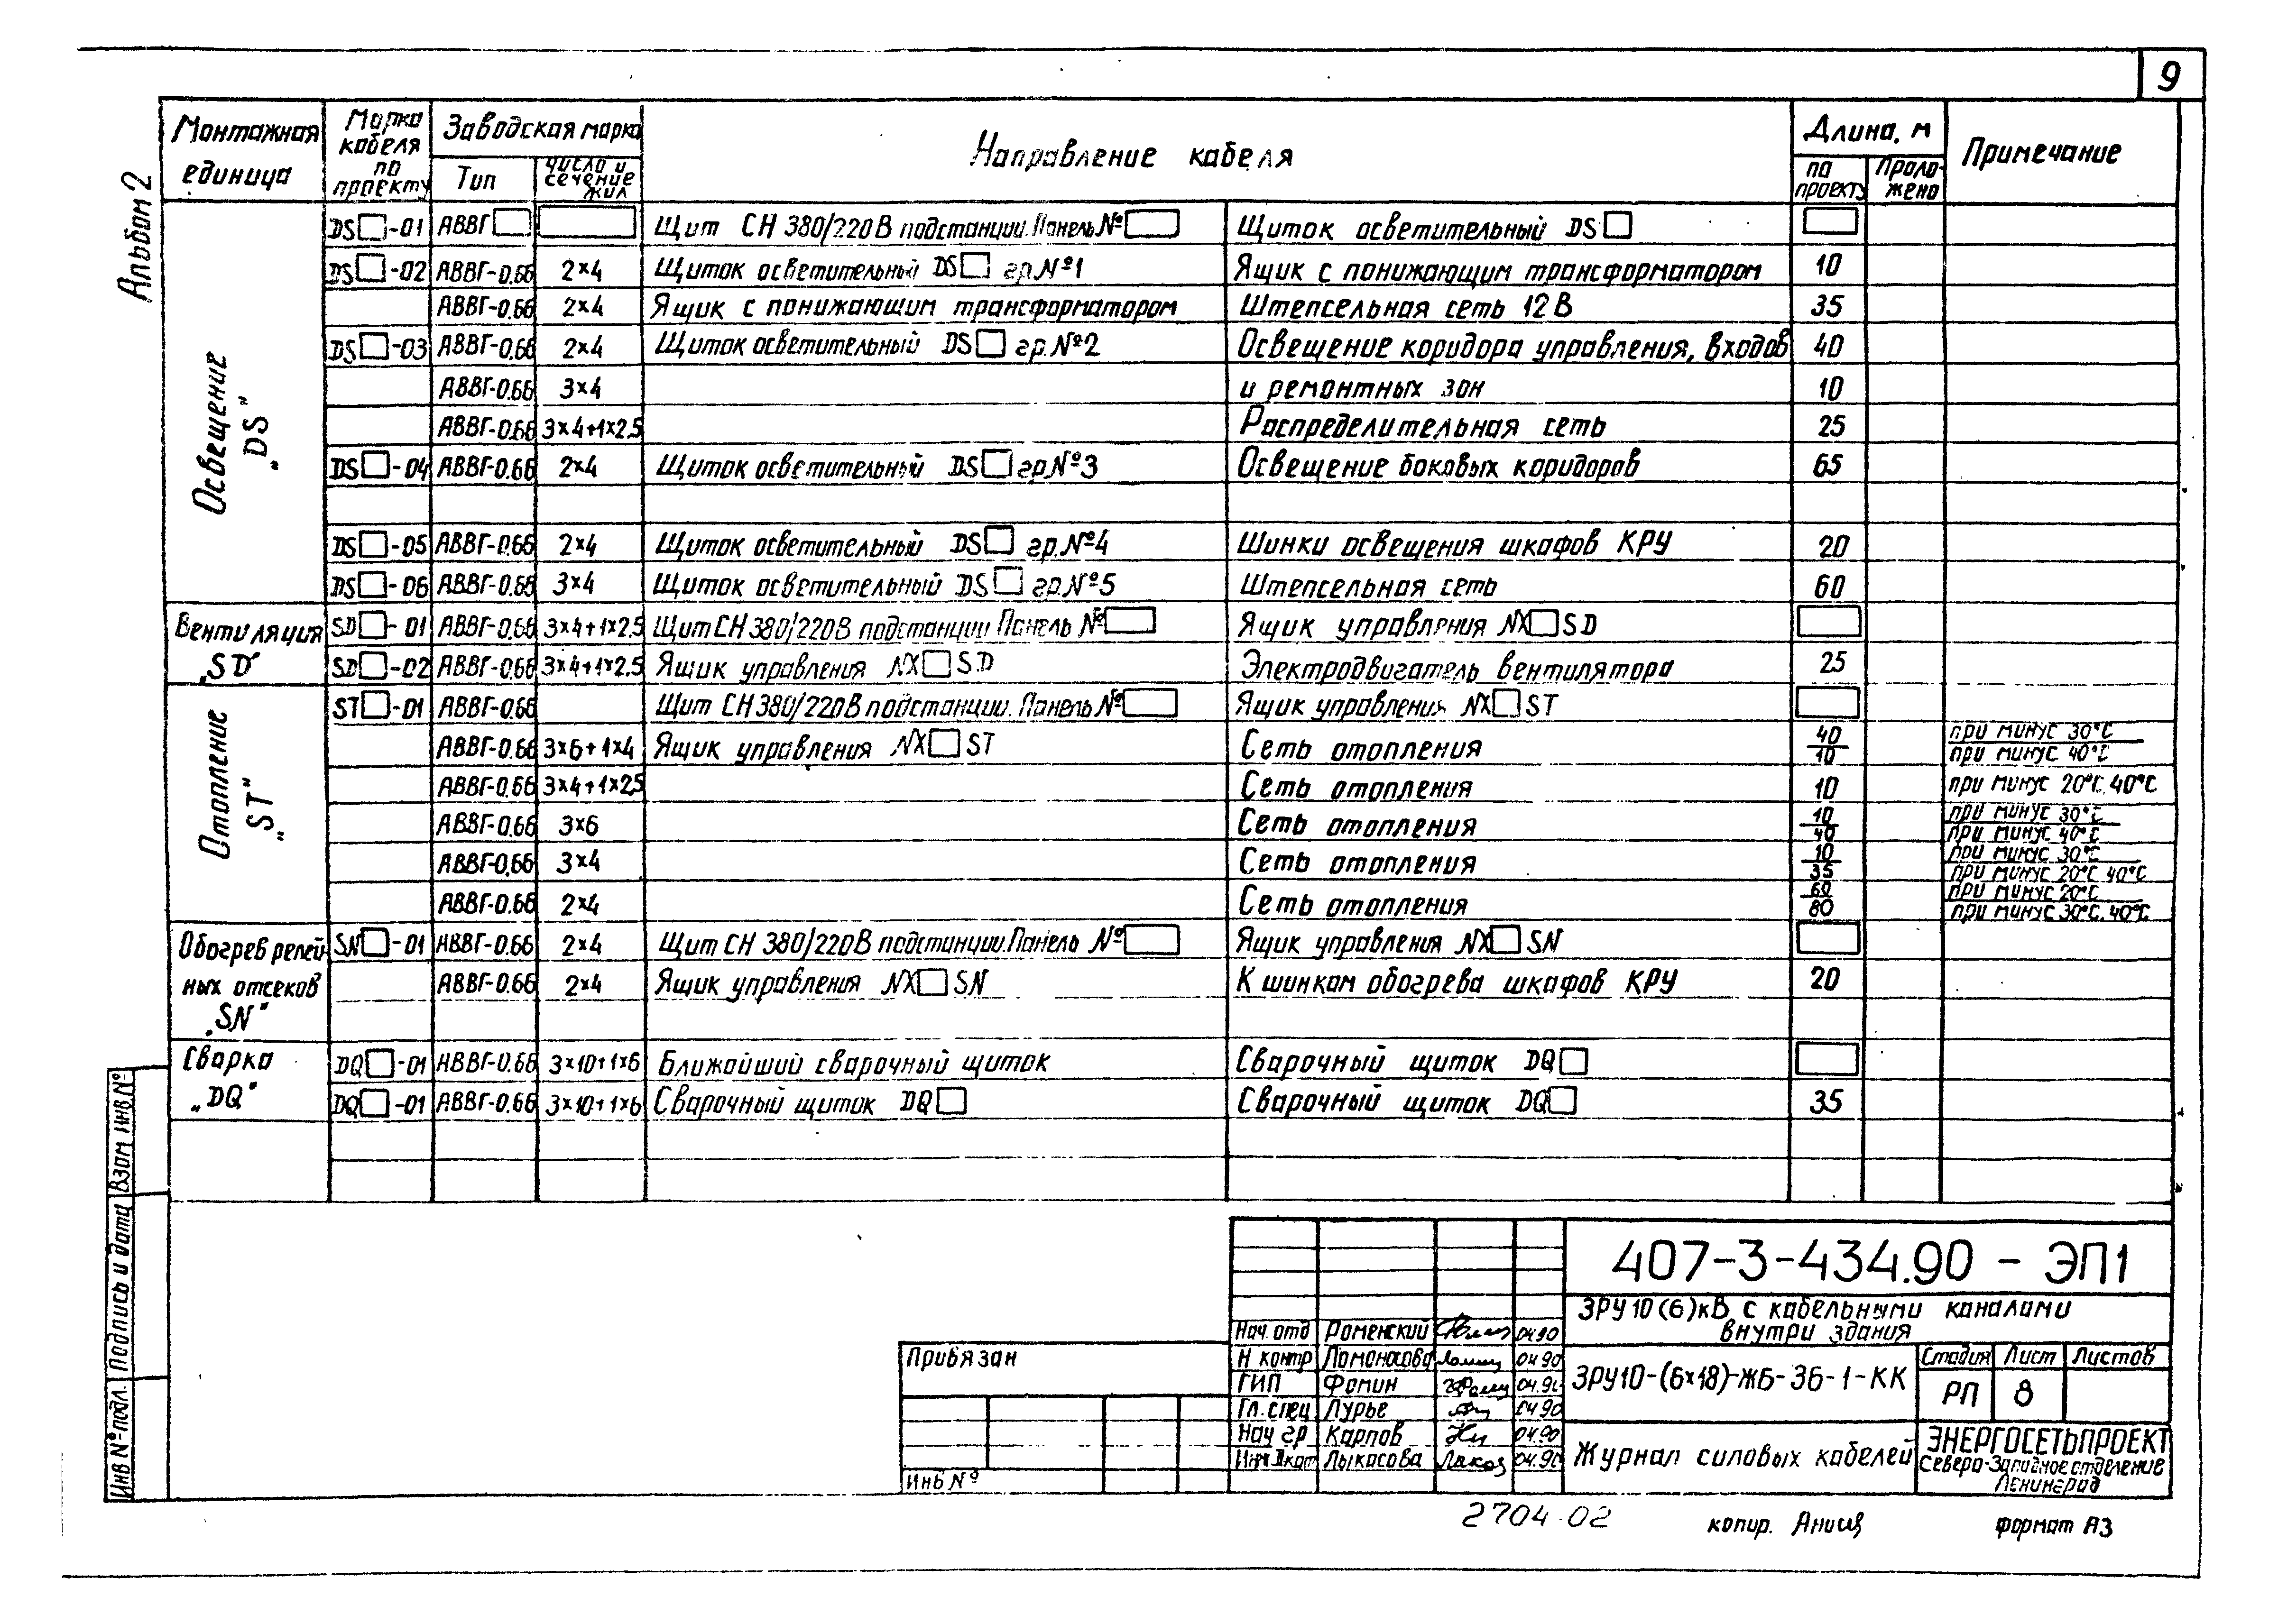 9
Альбом 2
Монтажная единица | Марка кабеля по проекту | Заводская марка | Направление кабеля | Длина, м | Примечание
Тип | число и сечение жил | по проекту | Проложено
Освещение "DS"
DS□-01 | АВВГ□ | □ | Щит СН 380/220В подстанции. Панель №□ | Щиток осветительный DS□ | □
DS□-02 | АВВГ-0.66 | 2×4 | Щиток осветительный DS□ гр.№1 | Ящик с понижающим трансформатором | 10
АВВГ-0.66 | 2×4 | Ящик с понижающим трансформатором | Штепсельная сеть 12 В | 35
DS□-03 | АВВГ-0.66 | 2×4 | Щиток осветительный DS□ гр.№2 | Освещение коридора управления, входов | 40
АВВГ-0.66 | 3×4 | и ремонтных зон | 10
АВВГ-0.66 | 3×4+1×2.5 | Распределительная сеть | 25
DS□-04 | АВВГ-0.66 | 2×4 | Щиток осветительный DS□ гр.№3 | Освещение боковых коридоров | 65
DS□-05 | АВВГ-0.66 | 2×4 | Щиток осветительный DS□ гр.№4 | Шинки освещения шкафов КРУ | 20
DS□-06 | АВВГ-0.66 | 3×4 | Щиток осветительный DS□ гр.№5 | Штепсельная сеть | 60
Вентиляция "SD"
SD□-01 | АВВГ-0.66 | 3×4+1×2.5 | Щит СН 380/220В подстанции Панель №□ | Ящик управления NX□SD | □
SD□-02 | АВВГ-0.66 | 3×4+1×2.5 | Ящик управления NX□SD | Электродвигатель вентилятора | 25
Отопление "ST"
ST□-01 | АВВГ-0.66 | Щит СН 380/220В подстанции. Панель №□ | Ящик управления NX□ST | □
АВВГ-0.66 | 3×6+1×4 | Ящик управления NX□ST | Сеть отопления | 40/10 | при минус 30°С / при минус 40°С
АВВГ-0.66 | 3×4+1×2.5 | Сеть отопления | 10 | при минус 20°С, 40°С
АВВГ-0.66 | 3×6 | Сеть отопления | 10/40 | при минус 30°С / при минус 40°С
АВВГ-0.66 | 3×4 | Сеть отопления | 10/35 | при минус 30°С / при минус 20°С 40°С
АВВГ-0.66 | 2×4 | Сеть отопления | 60/80 | при минус 20°С / при минус 30°С, 40°С
Обогрев релейных отсеков "SN"
SN□-01 | АВВГ-0.66 | 2×4 | Щит СН 380/220В подстанции. Панель №□ | Ящик управления NX□SN | □
АВВГ-0.66 | 2×4 | Ящик управления NX□SN | К шинкам обогрева шкафов КРУ | 20
Сварка "DQ"
DQ□-01 | АВВГ-0.66 | 3×10+1×6 | Ближайший сварочный щиток | Сварочный щиток DQ□ | □
DQ□-01 | АВВГ-0.66 | 3×10+1×6 | Сварочный щиток DQ□ | Сварочный щиток DQ□ | 35
Инв № подл. | Подпись и дата | Взам инв №
Привязан
Инв №
407-3-434.90 - ЭП1
ЗРУ 10(6)кВ с кабельными каналами
внутри здания
Нач. отд | Роменский | 04.90
Н контр | Ломоносова | 04.90
ГИП | Фомин | 04.90
Гл. спец | Лурье | 04.90
Нач гр | Карпов | 04.90
Лыкасова | 04.90
ЗРУ10-(6×18)-ЖБ-36-1-КК
Стадия | Лист | Листов
РП | 8
Журнал силовых кабелей
ЭНЕРГОСЕТЬПРОЕКТ
Северо-Западное отделение
Ленинград
2704-02
копир.
формат А3